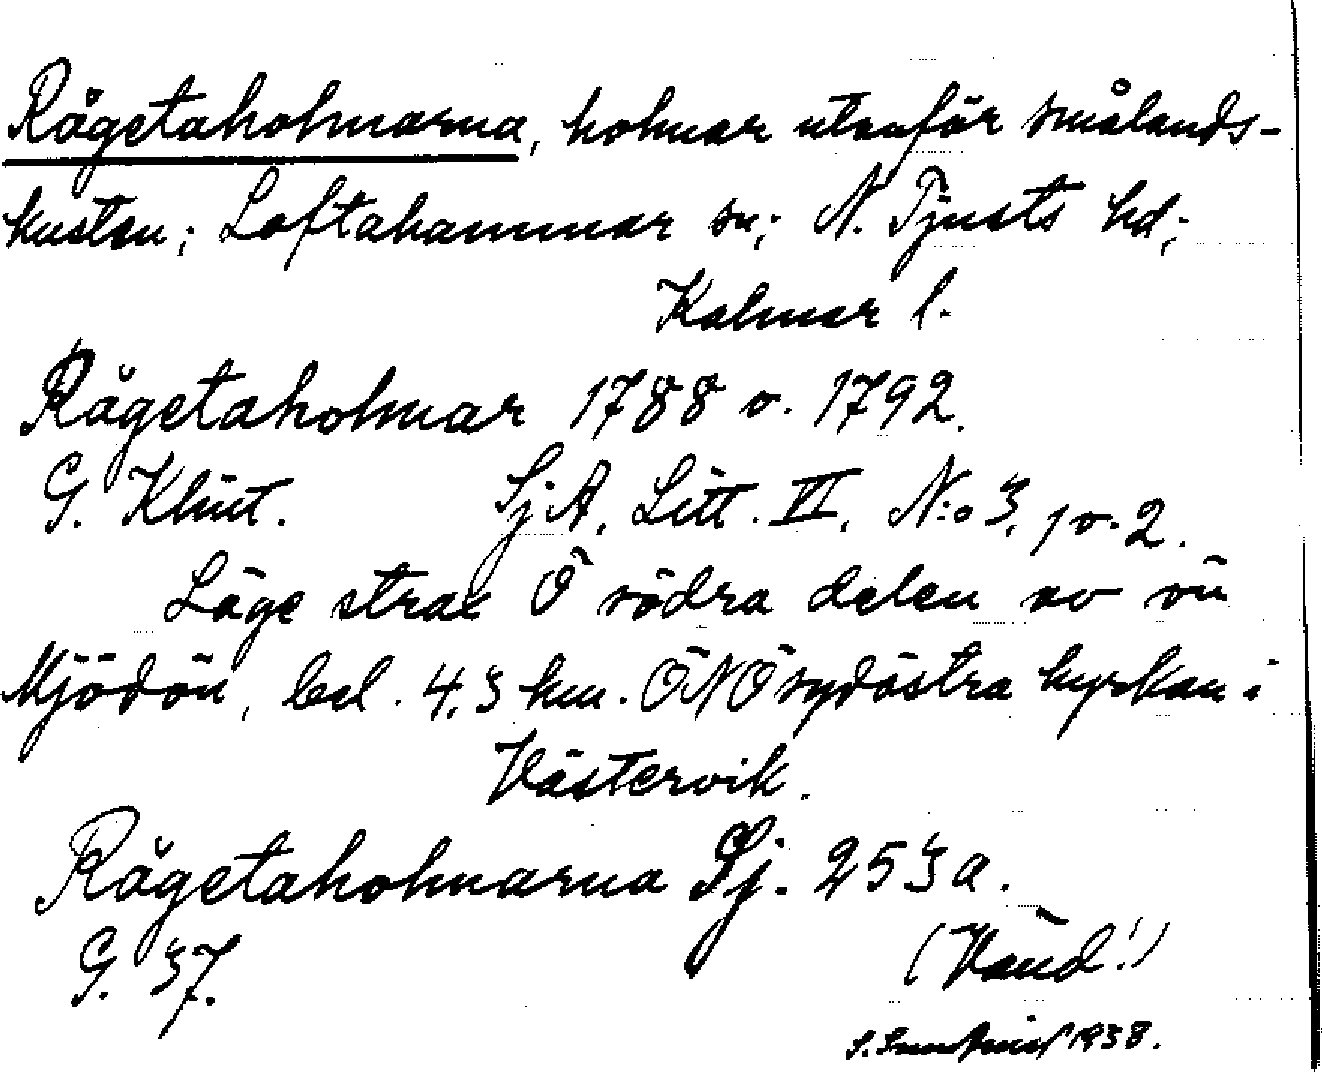 Rågetaholmarna, holmar utanför smålands-
kusten; Loftahammar sn; N. Tjusts hd;
Kalmar l.
Rågetaholmar 1788 o. 1792.
G. Klint. SjA. Litt. VI. N:o 3, 1 o. 2.
Läge strax Ö södra delen av ön
Mjödön, bel. 4,3 km. ÖNÖ sydöstra kyrkan i
Västervik.
Rågetaholmarna Sj. 253a.
G. 37.
(Vänd!)
1938.